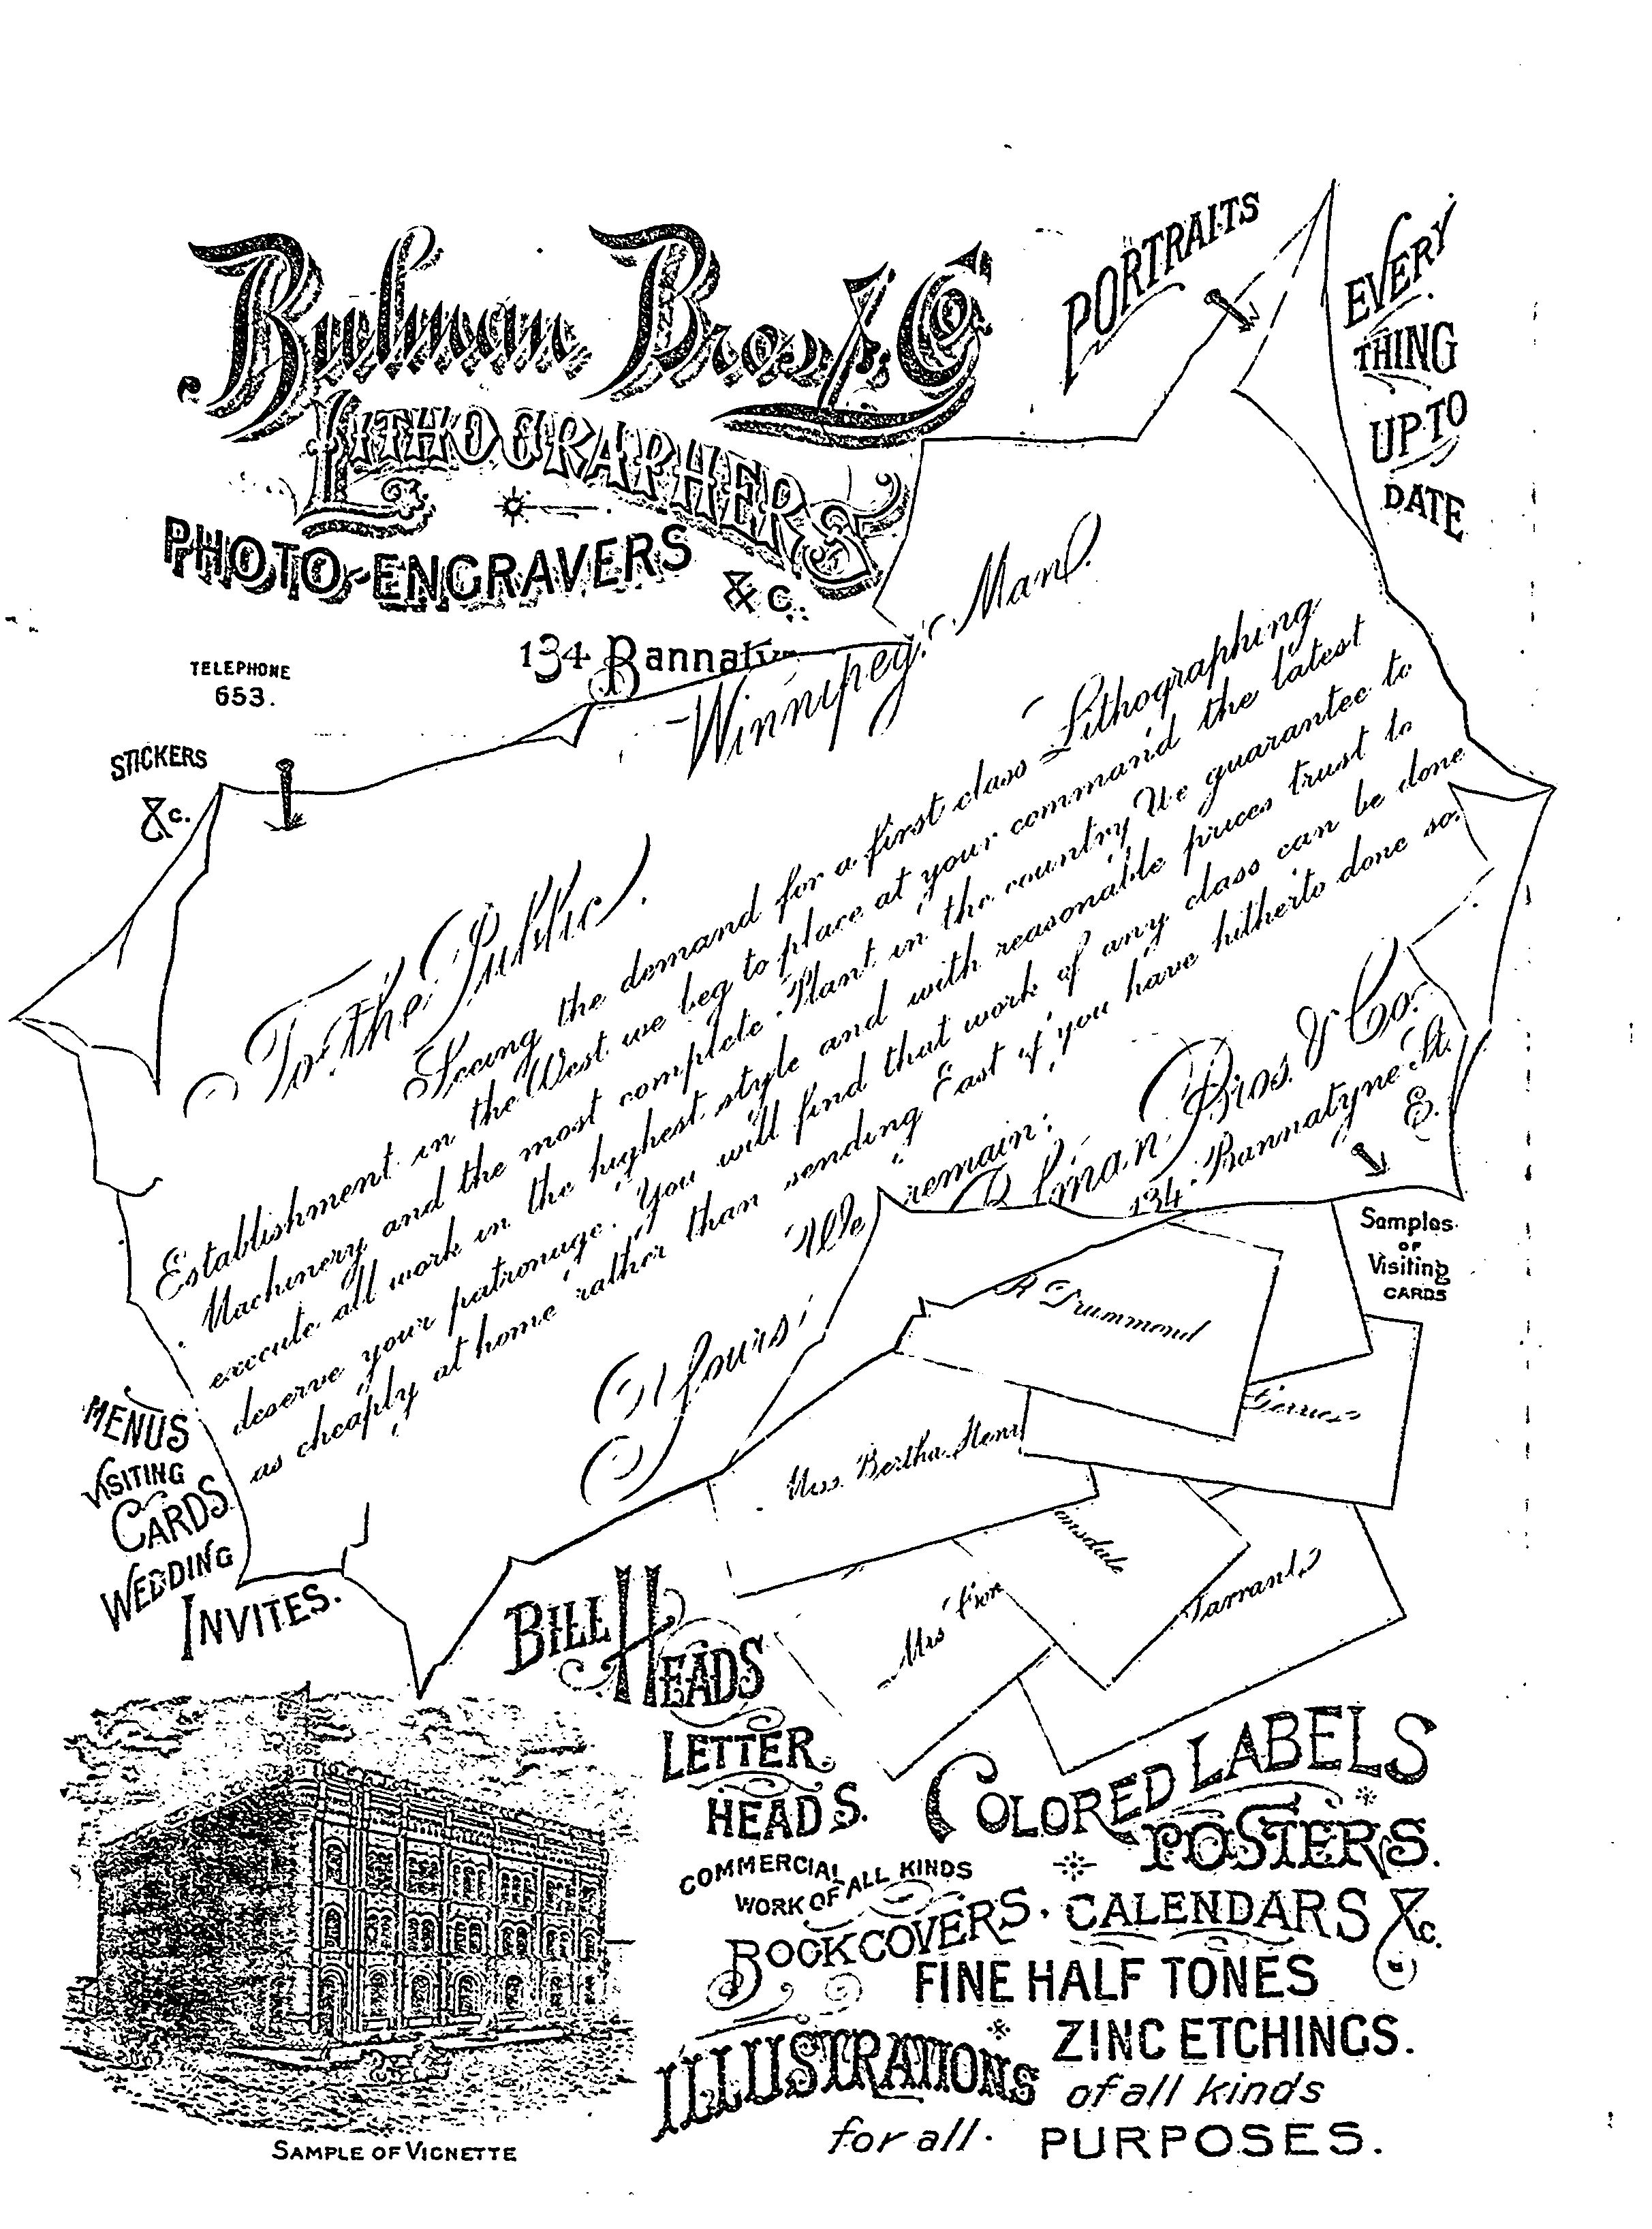 Bulman Bros. & Co.
LITHOGRAPHERS
PHOTO-ENGRAVERS
&c.
134 Bannaty
TELEPHONE
653.
PORTRAITS
EVERY
THING
UP TO
DATE
STICKERS
&c.
Winnipeg. Man.
To the Public.
Seeing the demand for a first class Lithographing
Establishment in the West we beg to place at your command the latest
Machinery and the most complete Plant in the country We guarantee to
execute all work in the highest style and with reasonable prices trust to
deserve your patronage. You will find that work of any class can be done
as cheaply at home rather than sending East if you have hitherto done so.
We remain:
Yours
Bulman Bros. & Co.
134 Bannatyne St.
E.
Samples
OF
Visiting
CARDS
R Drummond
Miss Bertha Henr
Mrs
Tarrant
MENUS
VISITING
CARDS
WEDDING
INVITES.
BILL HEADS
LETTER
HEADS.
COMMERCIAL
WORK OF ALL KINDS
COLORED LABELS
POSTERS.
BOOKCOVERS. CALENDARS &c.
FINE HALF TONES
ZINC ETCHINGS.
of all kinds
ILLUSTRATIONS
for all. PURPOSES.
SAMPLE OF VIGNETTE